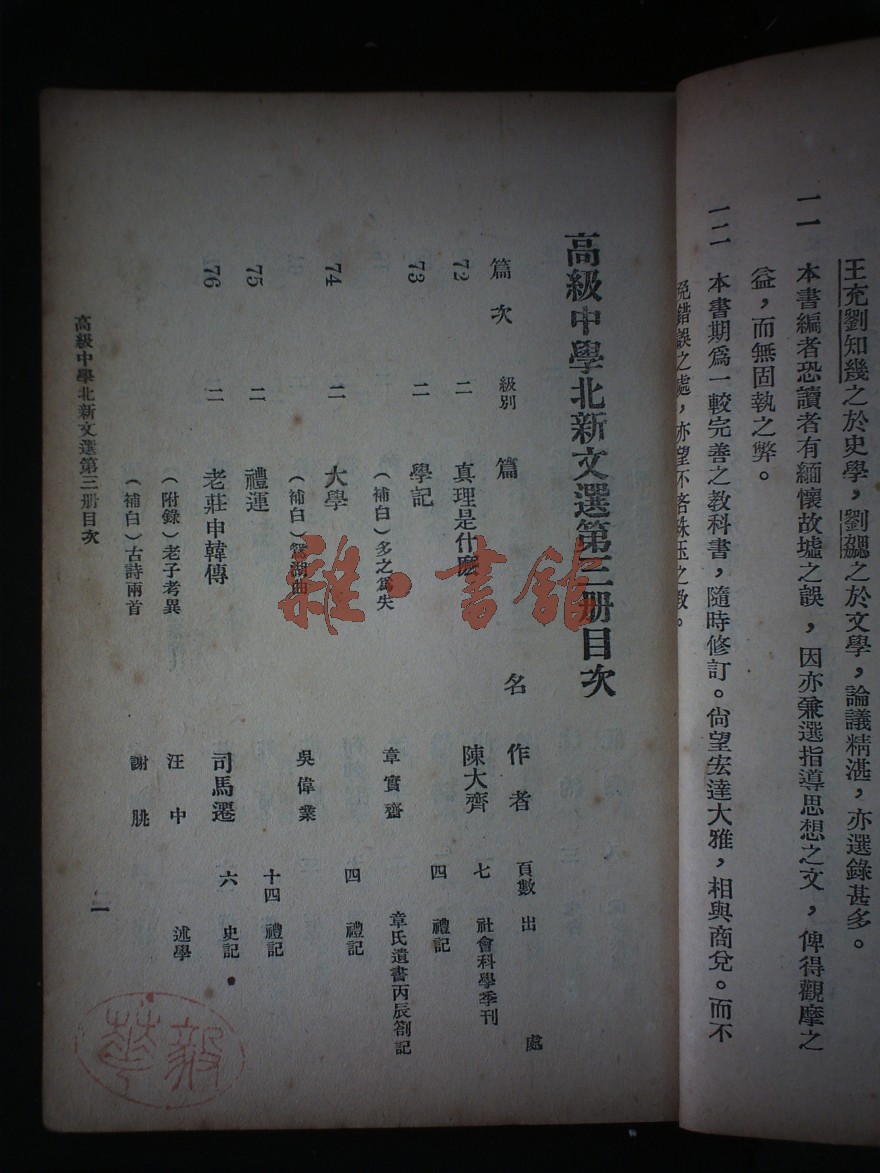 王充劉知幾之於史學，劉勰之於文學，論議精湛，亦選錄甚多。
一一 本書編者恐讀者有緬懷故墟之誤，因亦兼選指導思想之文，俾得觀摩之
益，而無固執之弊。
一二 本書期爲一較完善之教科書，隨時修訂。尙望宏達大雅，相與商兌。而不
免錯誤之處，亦望不吝珠玉之教。
高級中學北新文選第三册目次
篇次 級別 篇名 作者 頁數 出處
72 二 真理是什麽 陳大齊 七 社會科學季刊
73 二 學記 四 禮記
（補白）多之爲失 章實齋 章氏遺書丙辰劄記
74 二 大學 四 禮記
（補白）鴛湖曲 吳偉業
75 二 禮運 十四 禮記
76 二 老莊申韓傳 司馬遷 六 史記
（附錄）老子考異 汪中 述學
（補白）古詩兩首 謝朓
高級中學北新文選第三册目次 一
雜·書館